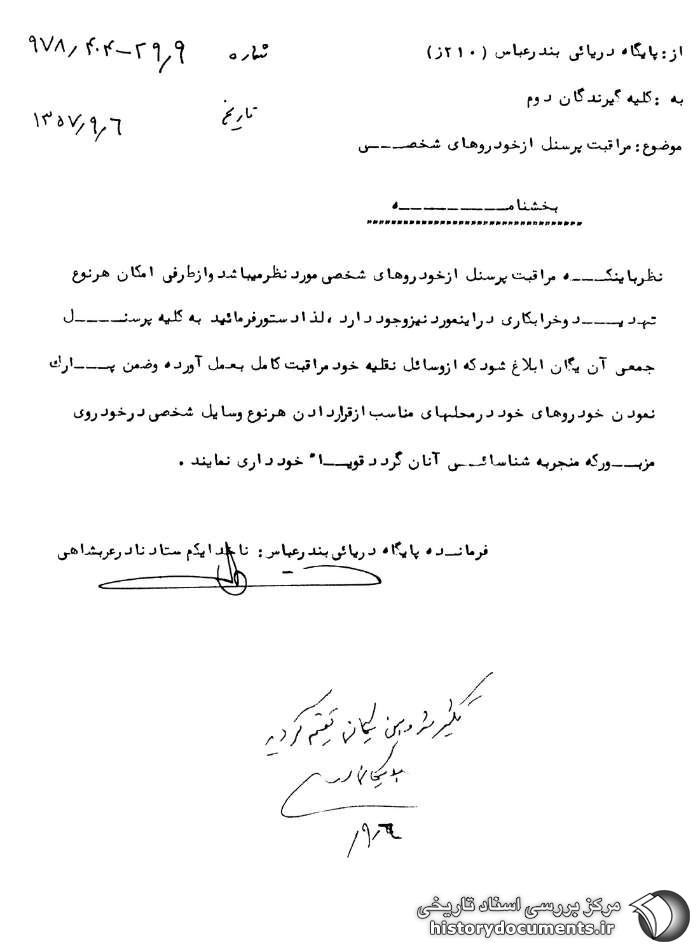 از: پایگاه دریائی بندرعباس (۲۱۰ز) شماره ۲۹٫۹-۴۰۴٫۹۷۸
به: کلیه گیرندگان دوم تاریخ ۱۳۵۷٫۹٫۶
موضوع: مراقبت پرسنل ازخودروهای شخصی
بخشنامه
نظرباینکه مراقبت پرسنل ازخودروهای شخصی موردنظرمیباشد وازطرفی امکان هرنوع
تهدید وخرابکاری دراینمورد نیزوجود دارد، لذا دستورفرمائید به کلیه پرسنل
جمعی آن یگان ابلاغ شودکه ازوسائل نقلیه خودمراقبت کامل بعمل آورده وضمن پارک
نمودن خودروهای خود درمحلهای مناسب ازقراردادن هرنوع وسایل شخصی درخودروی
مزبورکه منجربه شناسائی آنان گردد قویا" خودداری نمایند.
فرمانده پایگاه دریائی بندرعباس: ناخدایکم ستاد نادرعربشاهی
تکثیر شد و بین یگانها تقسیم گردید
۹٫
مرکز بررسی اسناد تاریخی
historydocuments.ir